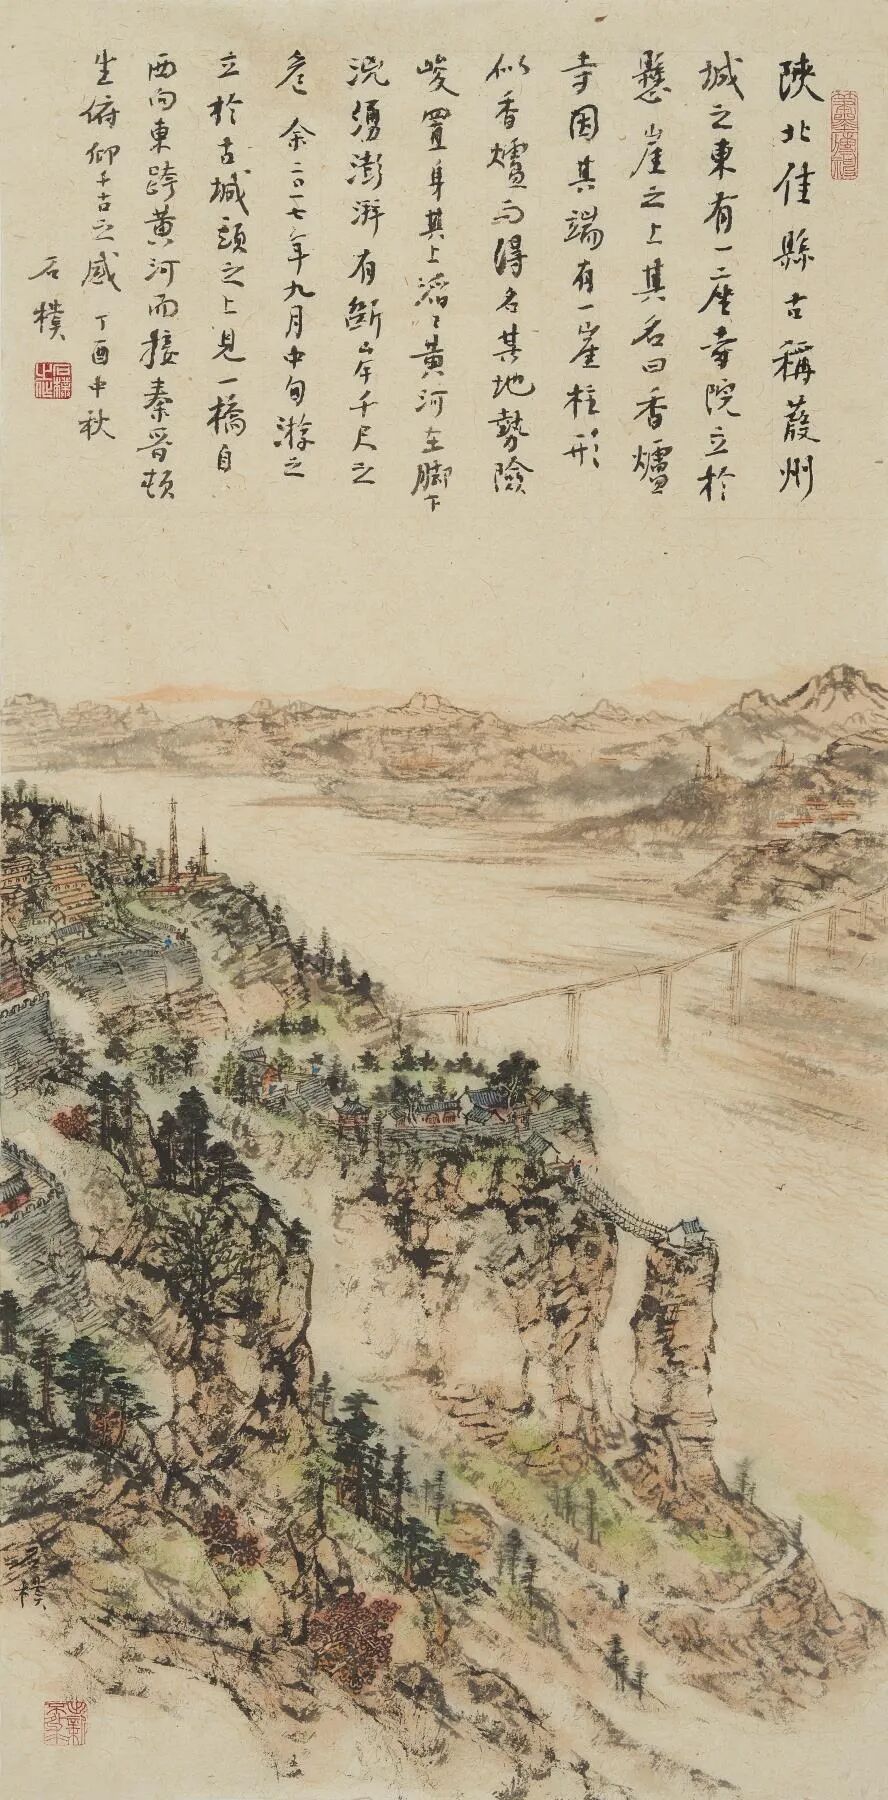 陝北佳縣古稱葭州
城之東有一座寺院立於
懸崖之上其名曰香爐
寺因其端有一崖柱形
似香爐而得名其地勢險
峻置身其上滔〻黄河在脚下
洶湧澎湃有斷岸千尺之
危余二〇一七年九月中旬游之
立於古城頭之上見一橋自
西向東跨黄河而接秦晋頓
生俯仰千古之感丁酉中秋
石樸
石樸